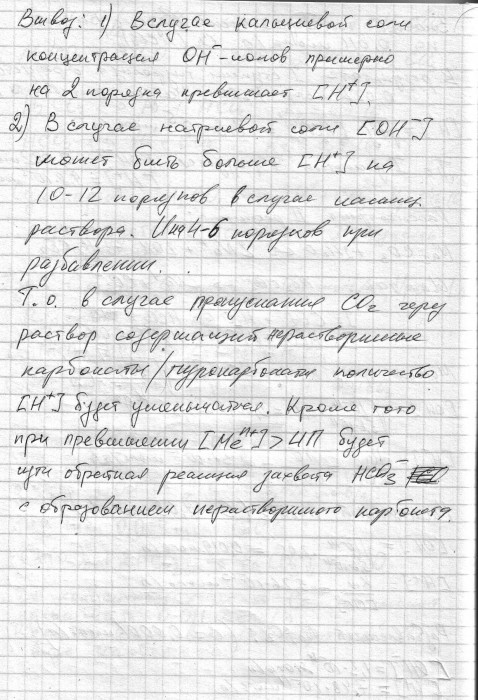 Вывод: 1) В случае кальциевой соли
концентрация OH⁻-ионов примерно
на 2 порядка превышает [H⁺].
2) В случае натриевой соли [OH⁻]
может быть больше [H⁺] на
10-12 порядков в случае насыщ.
раствора. И на 4-6 порядков при
разбавлении.
Т.о. в случае пропускания CO₂ через
раствор содержащий нерастворимые
карбонаты/гидрокарбонаты количество
[H⁺] будет уменьшаться. Кроме того
при превышении [Meⁿ⁺] > ПП будет
идти обратная реакция захвата HCO₃⁻
с образованием нерастворимого карбоната.